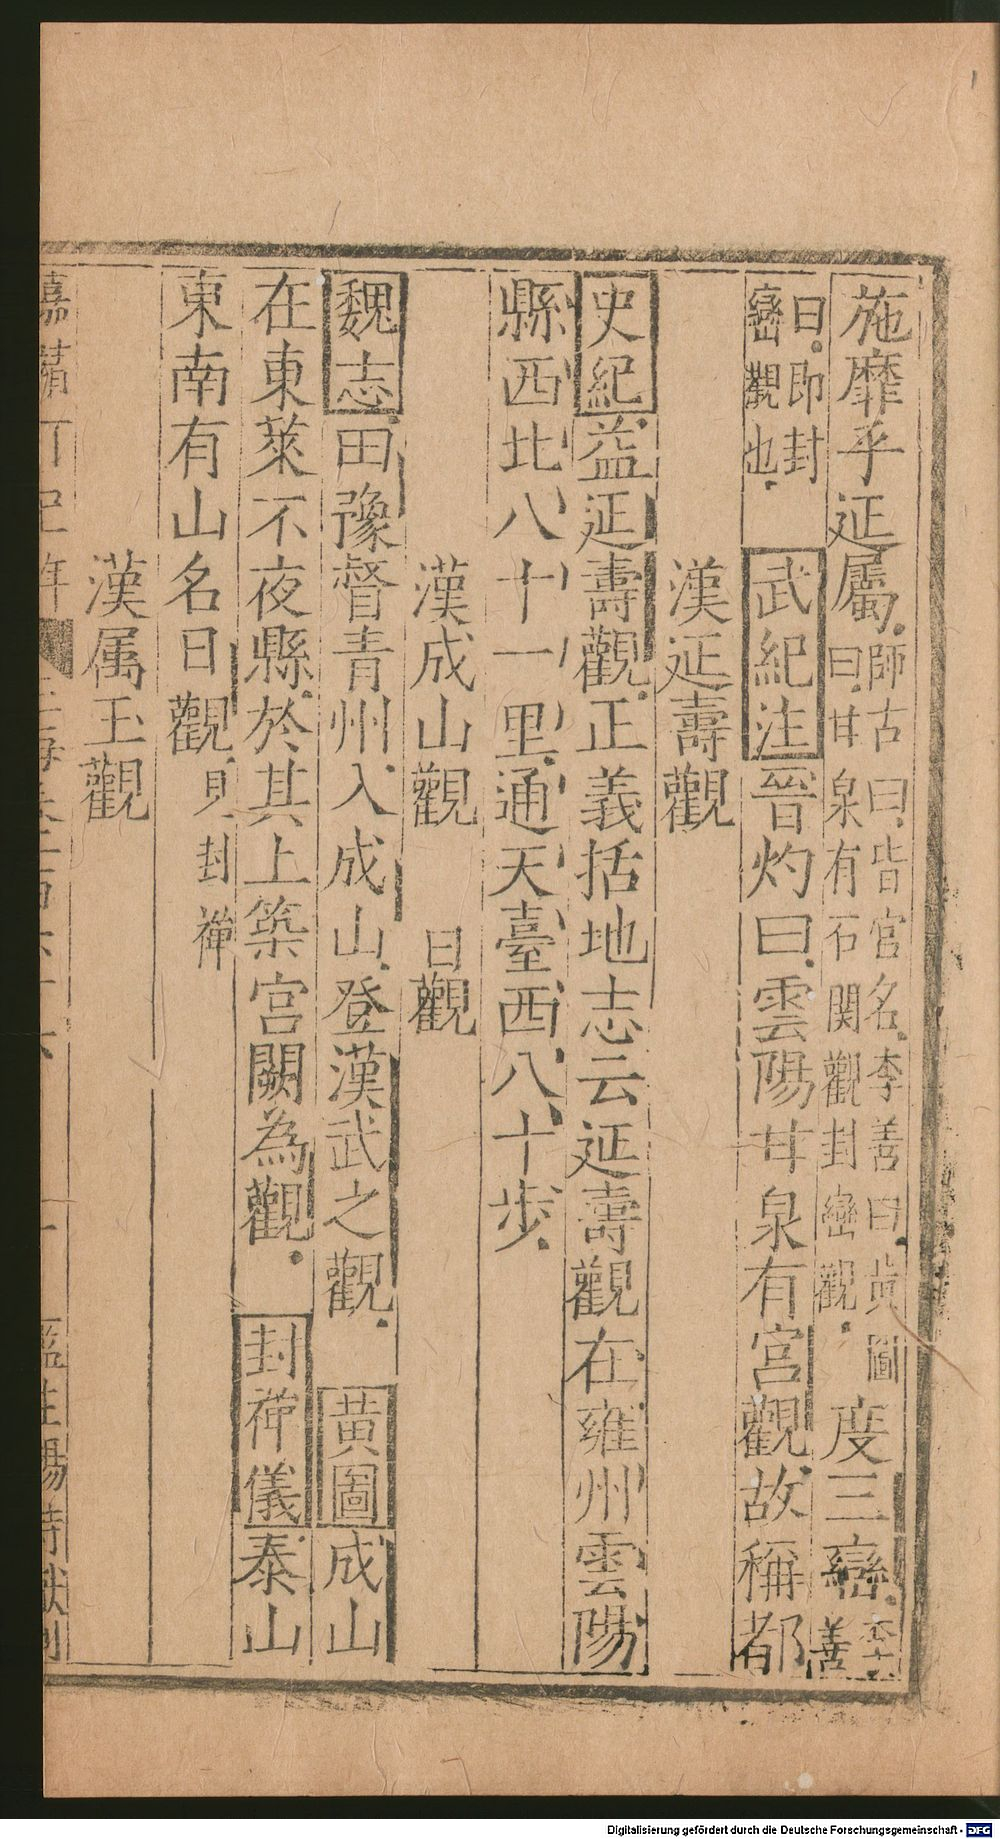 施靡乎延屬師古曰皆宫名李善曰黄圖曰甘泉有石関觀封巒觀度三巒李善
曰即封巒觀也武紀注晉灼曰雲陽甘泉有宫觀故稱都
漢延壽觀
史紀益延壽觀正義括地志云延壽觀在雍州雲陽
縣西北八十一里通天臺西八十步
漢成山觀 日觀
魏志田豫督青州入成山登漢武之觀 黄圖成山
在東萊不夜縣於其上築宫闕為觀 封禅儀泰山
東南有山名日觀見封禅
漢属玉觀
Digitalisierung gefördert durch die Deutsche Forschungsgemeinschaft - DFG